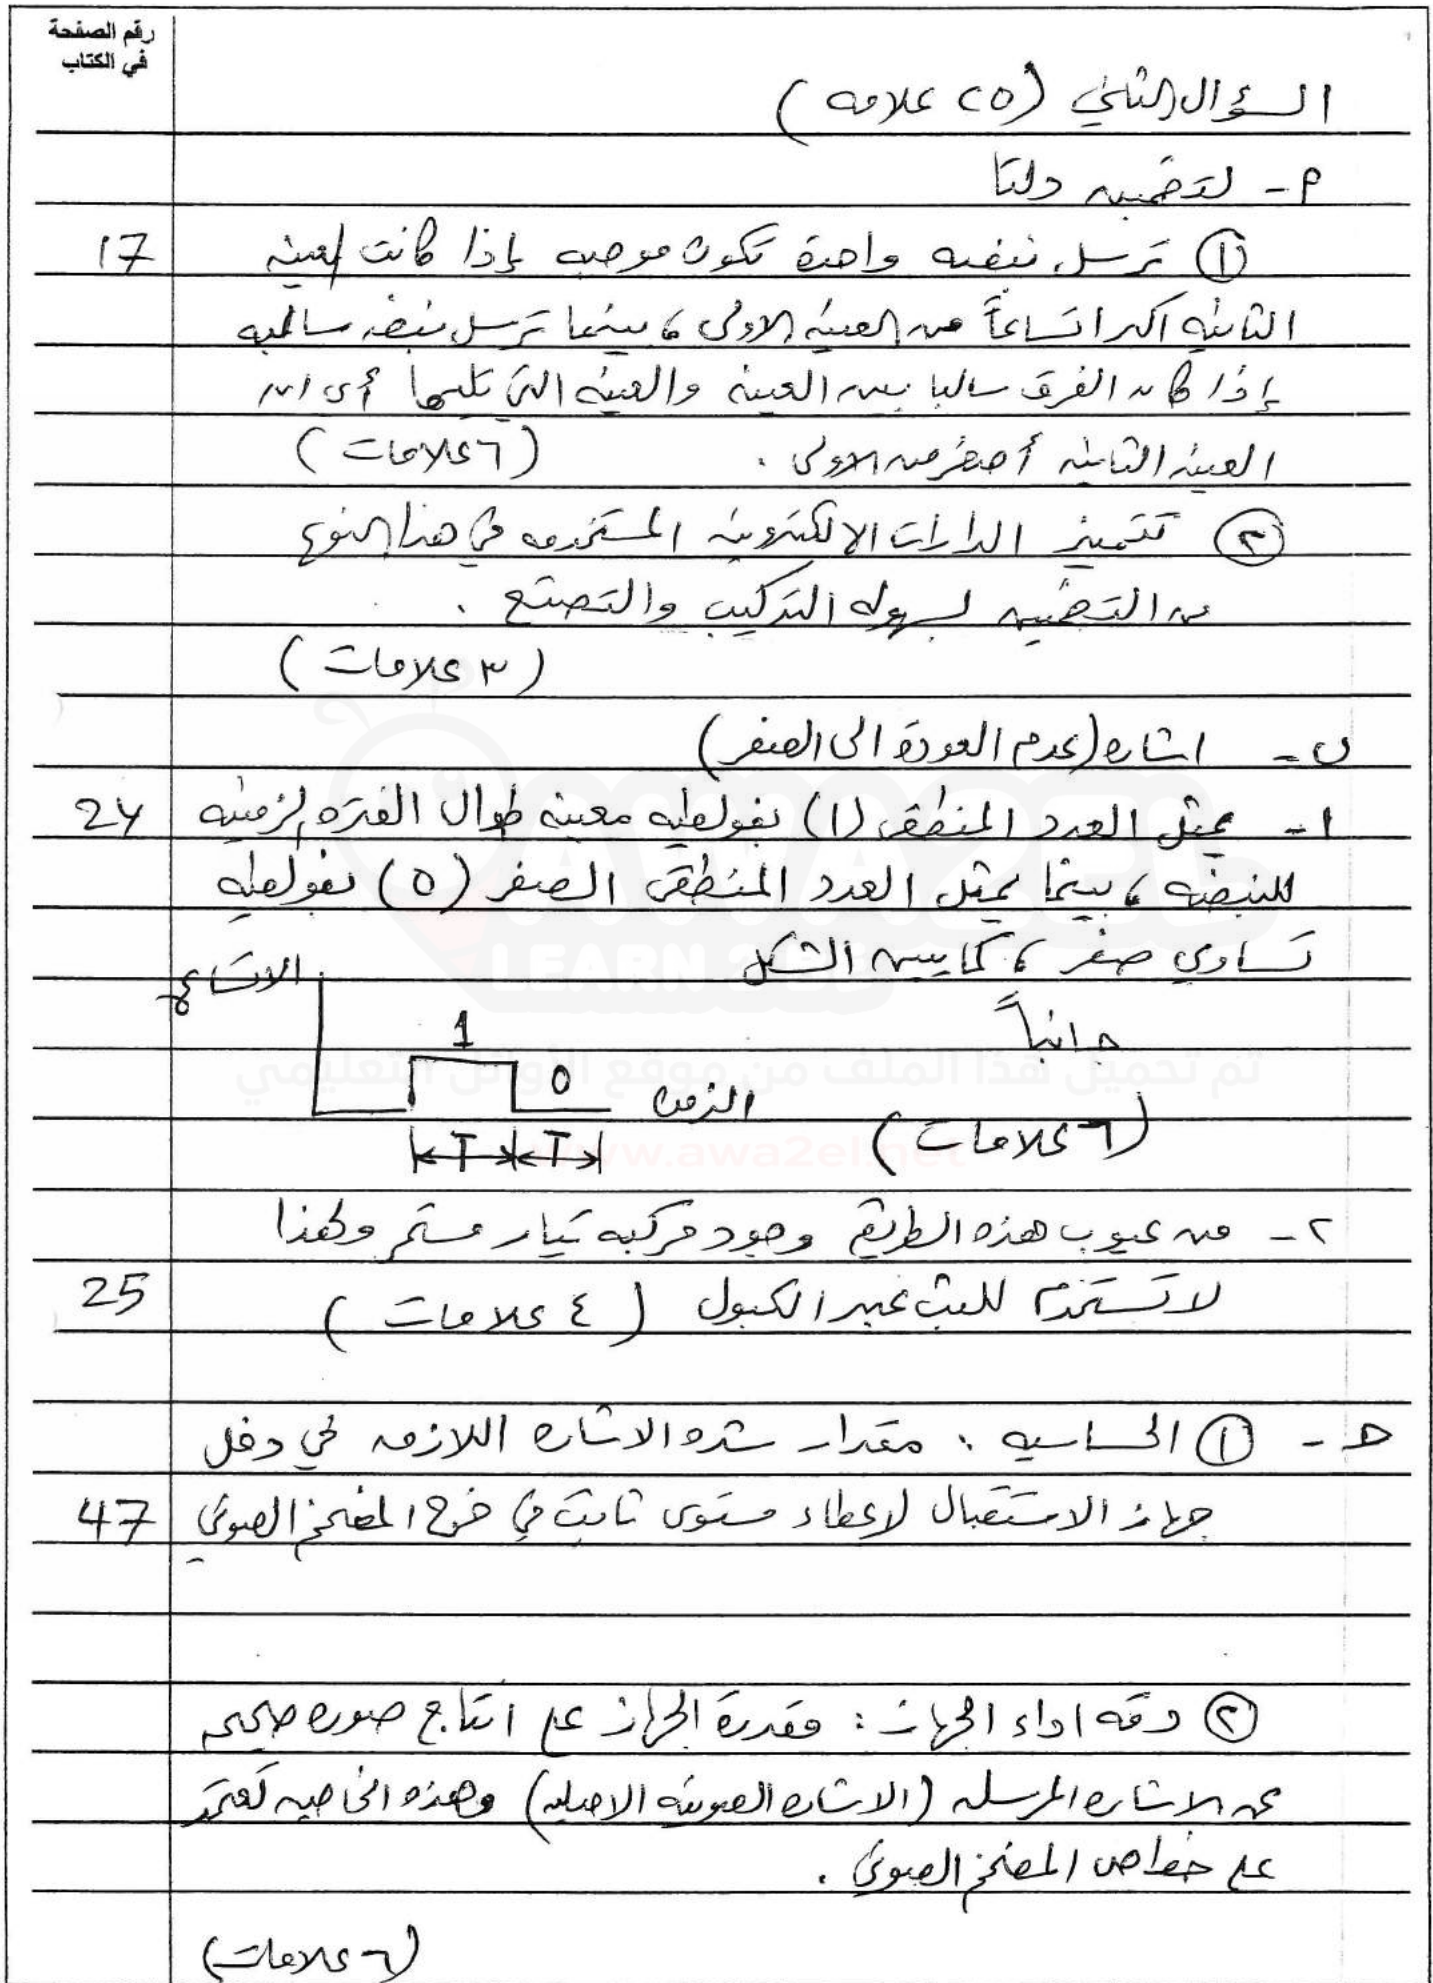 رقم الصفحة
في الكتاب
السؤال الثاني (٢٥ علامه)
أ - تضمين دلتا
17
① ترسل نبضه واحدة تكون موجبه إذا كانت العينه
الثانيه اكبر اتساعاً من العينه الاولى ، بينما ترسل نبضه سالبه
إذا كان الفرق سالبا بين العينه والعينه التي تليها أي ان
العينه الثانيه أصغر من الاولى . (٦ علامات)
② تتميز الدارات الالكترونيه المستخدمه في هذا النوع
من التضمين بسهوله التركيب والتصنيع .
(٣ علامات)
ب - اشاره (عدم العودة الى الصفر)
24
١- يمثل العدد المنطقي (١) بفولطيه معينه طوال الفتره الزمنيه
للنبضه ، بينما يمثل العدد المنطقي الصفر (٥) بفولطيه
تساوي صفر ، كما يبين الشكل
جانباً
الاتساع
1
0
الزمن
T T
(٦ علامات)
٢- من عيوب هذه الطريقه وجود مركبه تيار مستمر ولهذا
25
لا تستخدم للبث عبر الكبول (٤ علامات)
ج - ① الحساسيه : مقدار شده الاشاره اللازمه في دخل
47
جهاز الاستقبال لاعطاء مستوى ثابت في خرج المضخم الصوتي
② دقه اداء الجهاز : مقدرة الجهاز على انتاج صوره صحيحه
عن الاشاره المرسله (الاشاره الصوتيه الاصليه) وهذه الخاصيه تعتمد
على خواص المضخم الصوتي .
(٦ علامات)
AWA2EL
LEARN 2 BE
تم تحميل هذا الملف من موقع الأوائل التعليمي
www.awa2el.net